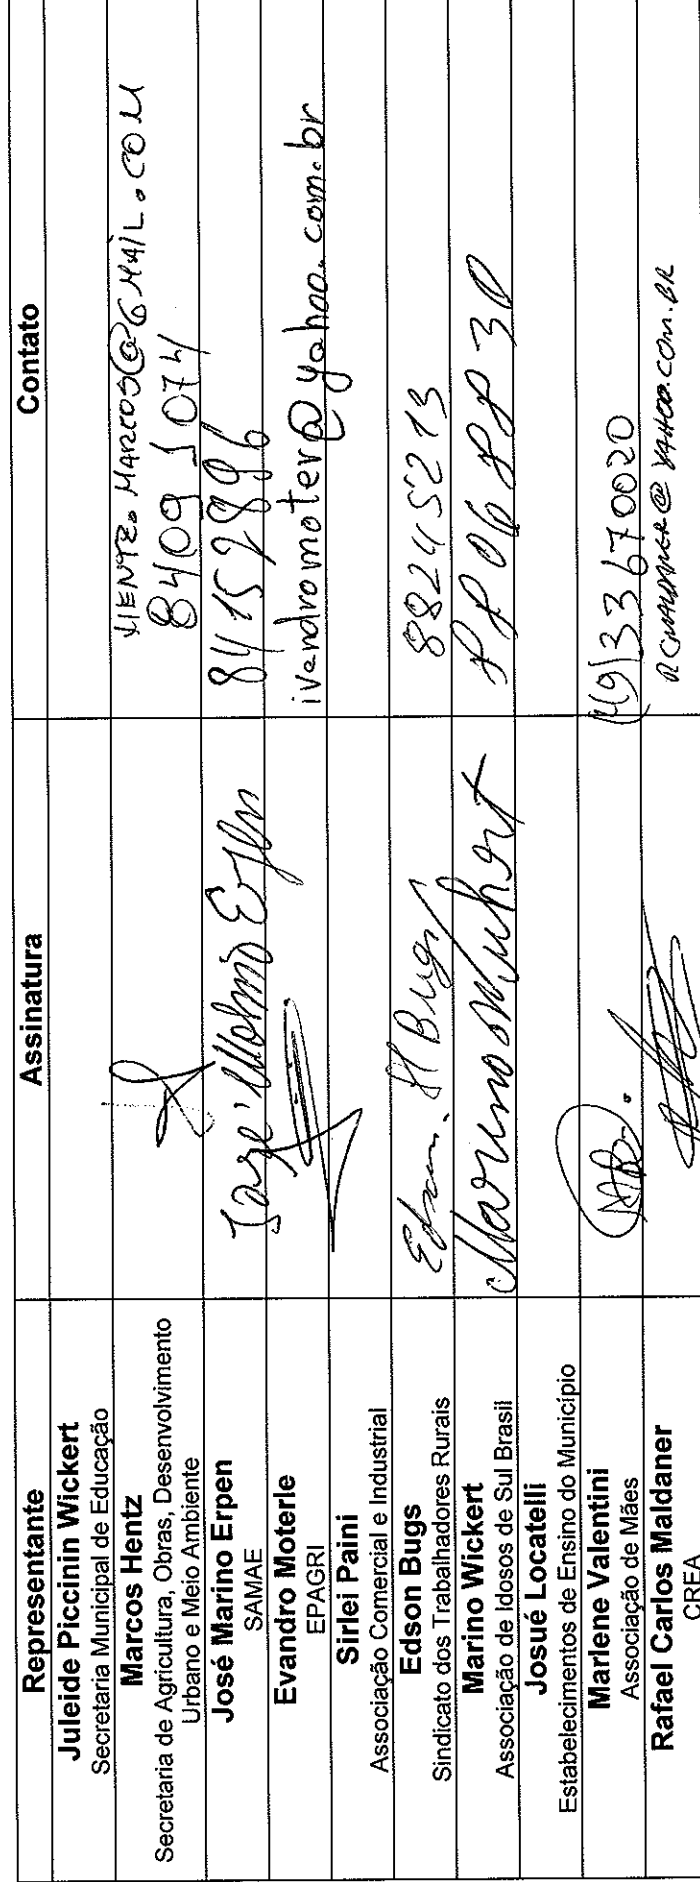 Representante Assinatura Contato
Juleide Piccinin Wickert
Secretaria Municipal de Educação
Marcos Hentz
Secretaria de Agricultura, Obras, Desenvolvimento
Urbano e Meio Ambiente
MARCOS@GMAIL.COM
8409 1074
José Marino Erpen
SAMAE
José Marino Erpen
84152896
Evandro Moterle
EPAGRI
ivandromoter@yahoo.com.br
Sirlei Paini
Associação Comercial e Industrial
Edson Bugs
Sindicato dos Trabalhadores Rurais
Edson Bugs
88245213
Marino Wickert
Associação de Idosos de Sul Brasil
Marino Wickert
88068830
Josué Locatelli
Estabelecimentos de Ensino do Município
Marlene Valentini
Associação de Mães
(49)33670020
Rafael Carlos Maldaner
CREA
RCMALDANER@YAHOO.COM.BR